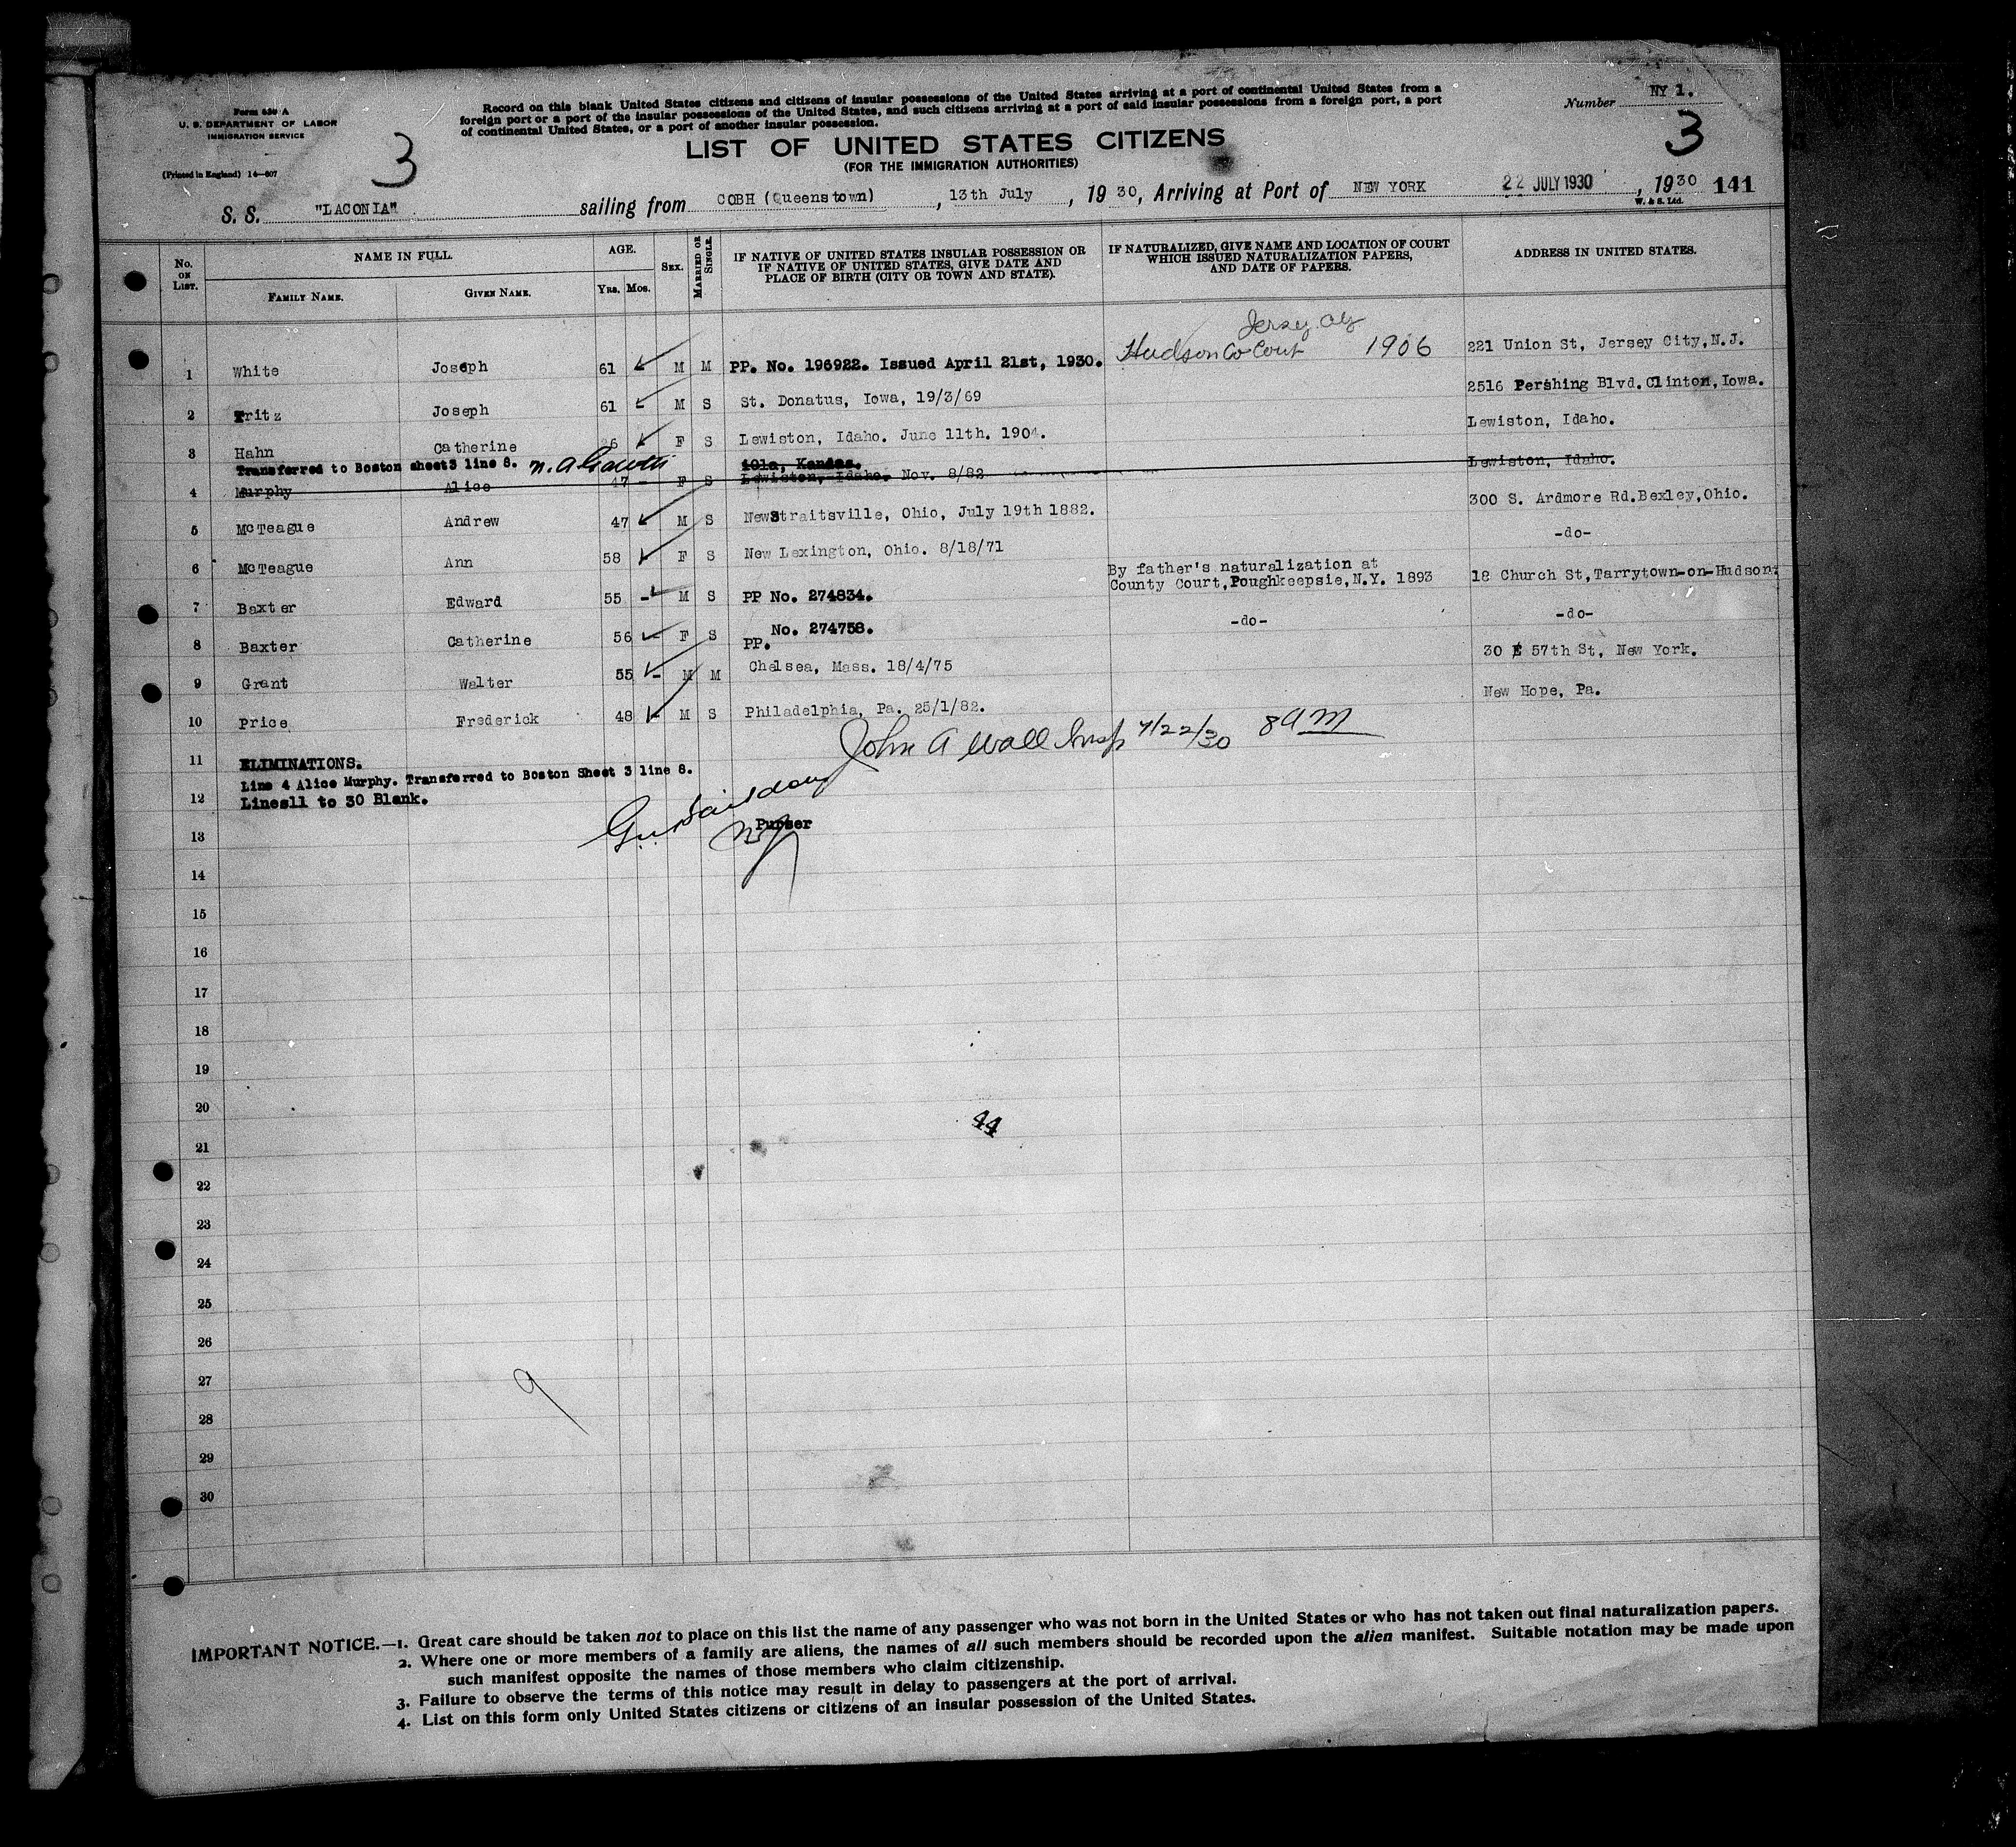 Form 630 A
U. S. DEPARTMENT OF LABOR
IMMIGRATION SERVICE
(Printed in England) 14—607
3
Record on this blank United States citizens and citizens of insular possessions of the United States arriving at a port of continental United States from a
foreign port or a port of the insular possessions of the United States, and such citizens arriving at a port of said insular possessions from a foreign port, a port
of continental United States, or a port of another insular possession.
Number NY 1.
3
LIST OF UNITED STATES CITIZENS
(FOR THE IMMIGRATION AUTHORITIES)
S. S. "LACONIA" sailing from COBH (Queenstown), 13th July, 19 30, Arriving at Port of NEW YORK 22 JULY 1930, 19 30 141
W. & S. Ltd.
No. ON LIST. NAME IN FULL. FAMILY NAME. GIVEN NAME. AGE. YRS. MOS. SEX. MARRIED OR SINGLE. IF NATIVE OF UNITED STATES INSULAR POSSESSION OR IF NATIVE OF UNITED STATES, GIVE DATE AND PLACE OF BIRTH (CITY OR TOWN AND STATE). IF NATURALIZED, GIVE NAME AND LOCATION OF COURT WHICH ISSUED NATURALIZATION PAPERS, AND DATE OF PAPERS. ADDRESS IN UNITED STATES.
Jersey City
1 White Joseph 61 M M PP. No. 196922. Issued April 21st, 1930. Hudson Co Court 1906 221 Union St, Jersey City, N.J.
2 Fritz Joseph 61 M S St. Donatus, Iowa, 19/3/69 2516 Pershing Blvd. Clinton, Iowa.
3 Hahn Catherine 26 F S Lewiston, Idaho. June 11th. 1904. Lewiston, Idaho.
Transferred to Boston sheet 3 line 8. Iola, Kansas.
4 Murphy Alice 47 F S Lewiston, Idaho. Nov. 8/82 Lewiston, Idaho.
5 McTeague Andrew 47 M S New Straitsville, Ohio, July 19th 1882. 300 S. Ardmore Rd. Bexley, Ohio.
6 McTeague Ann 58 F S New Lexington, Ohio. 8/18/71 -do-
By father's naturalization at
7 Baxter Edward 55 M S PP No. 274834. County Court, Poughkeepsie, N.Y. 1893 18 Church St, Tarrytown-on-Hudson.
8 Baxter Catherine 56 F S PP. No. 274758. -do- -do-
9 Grant Walter 55 M M Chelsea, Mass. 18/4/75 30 E 57th St, New York.
10 Price Frederick 48 M S Philadelphia, Pa. 25/1/82. New Hope, Pa.
John A Wall Insp 7/22/30 8 AM
11 ELIMINATIONS.
Line 4 Alice Murphy. Transferred to Boston Sheet 3 line 8.
12 Lines11 to 30 Blank.
Purser
13
14
15
16
17
18
19
20
44
21
22
23
24
25
26
27
9
28
29
30
IMPORTANT NOTICE.—1. Great care should be taken not to place on this list the name of any passenger who was not born in the United States or who has not taken out final naturalization papers.
2. Where one or more members of a family are aliens, the names of all such members should be recorded upon the alien manifest. Suitable notation may be made upon
such manifest opposite the names of those members who claim citizenship.
3. Failure to observe the terms of this notice may result in delay to passengers at the port of arrival.
4. List on this form only United States citizens or citizens of an insular possession of the United States.